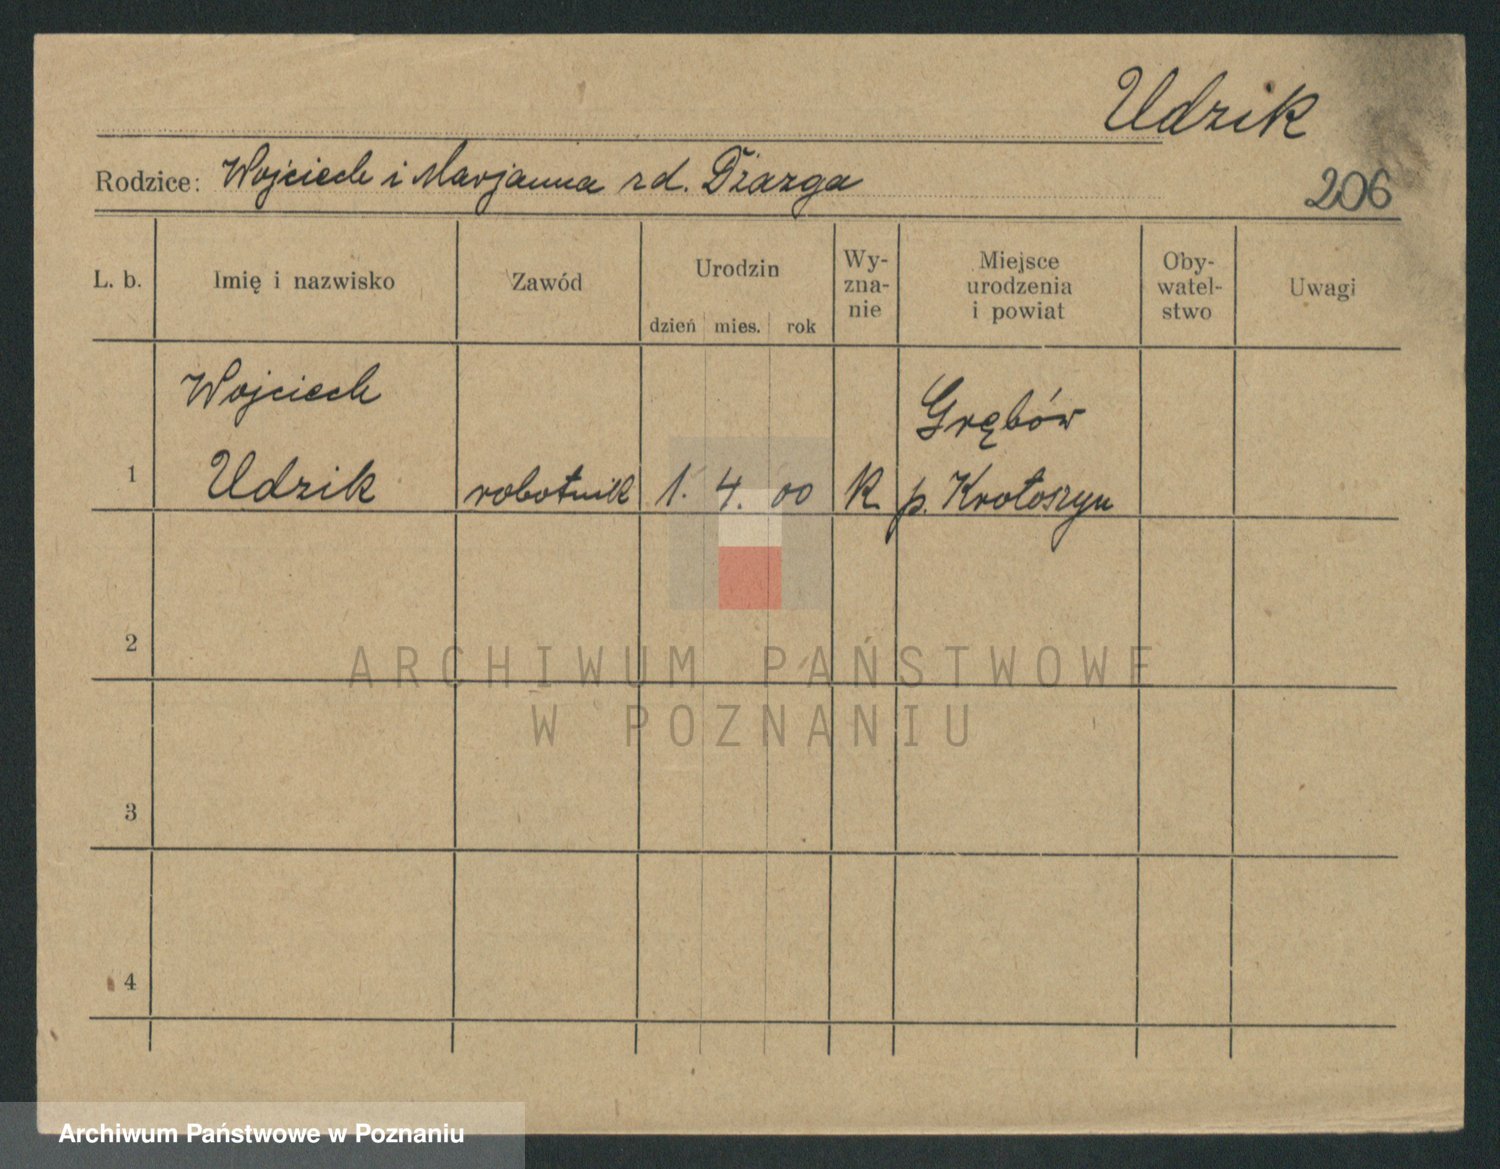 Udzik
Rodzice: Wojciech i Marjanna zd. Drzazga
206
L. b. Imię i nazwisko Zawód Urodzin dzień mies. rok Wy-zna-nie Miejsce urodzenia i powiat Oby-watel-stwo Uwagi
Wojciech Grębów
1 Udzik robotnik 1. 4. 00 k. p. Krotoszyn
2
ARCHIWUM PAŃSTWOWE
W POZNANIU
3
4
Archiwum Państwowe w Poznaniu